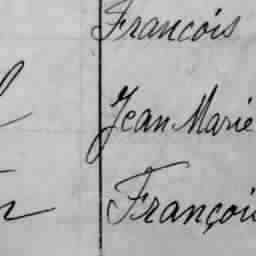 Francois
Jean Marie
François